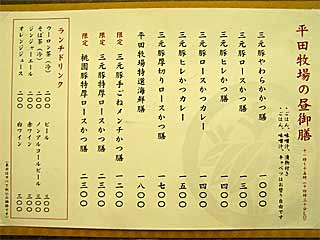 平田牧場の昼御膳
・ごはん、味噌汁、漬物付き
・ごはん、味噌汁、キャベツはお替り自由です
三元豚やわらかかつ膳 一〇〇〇
三元豚ロースかつ膳 一二〇〇
三元豚ヒレかつ膳 一三〇〇
三元豚ロースかつカレー膳 一四〇〇
三元豚ヒレかつカレー膳 一五〇〇
三元豚厚切りロースかつ膳 一六〇〇
平田牧場特選海鮮膳 一八〇〇
限定 三元豚手ごねメンチかつ膳 一二〇〇
限定 三元豚特厚ロースかつ膳 二三〇〇
限定 桃園豚特厚ロースかつ膳 三〇〇〇
ランチドリンク
ウーロン茶(冷) 二〇〇
そば茶(冷) 二〇〇
ジンジャーエール 二〇〇
オレンジジュース 二〇〇
ビール 三五〇
ノンアルコールビール 三五〇
赤ワイン 三〇〇
白ワイン 三〇〇